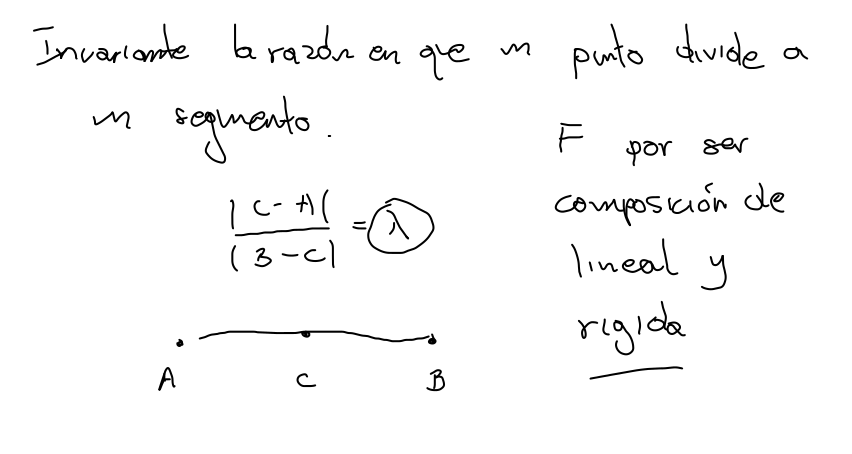 Invariante la razón en que un punto divide a
un segmento.
|C-A|
/|B-C| = λ
A C B
F por ser
composición de
lineal y
rigida